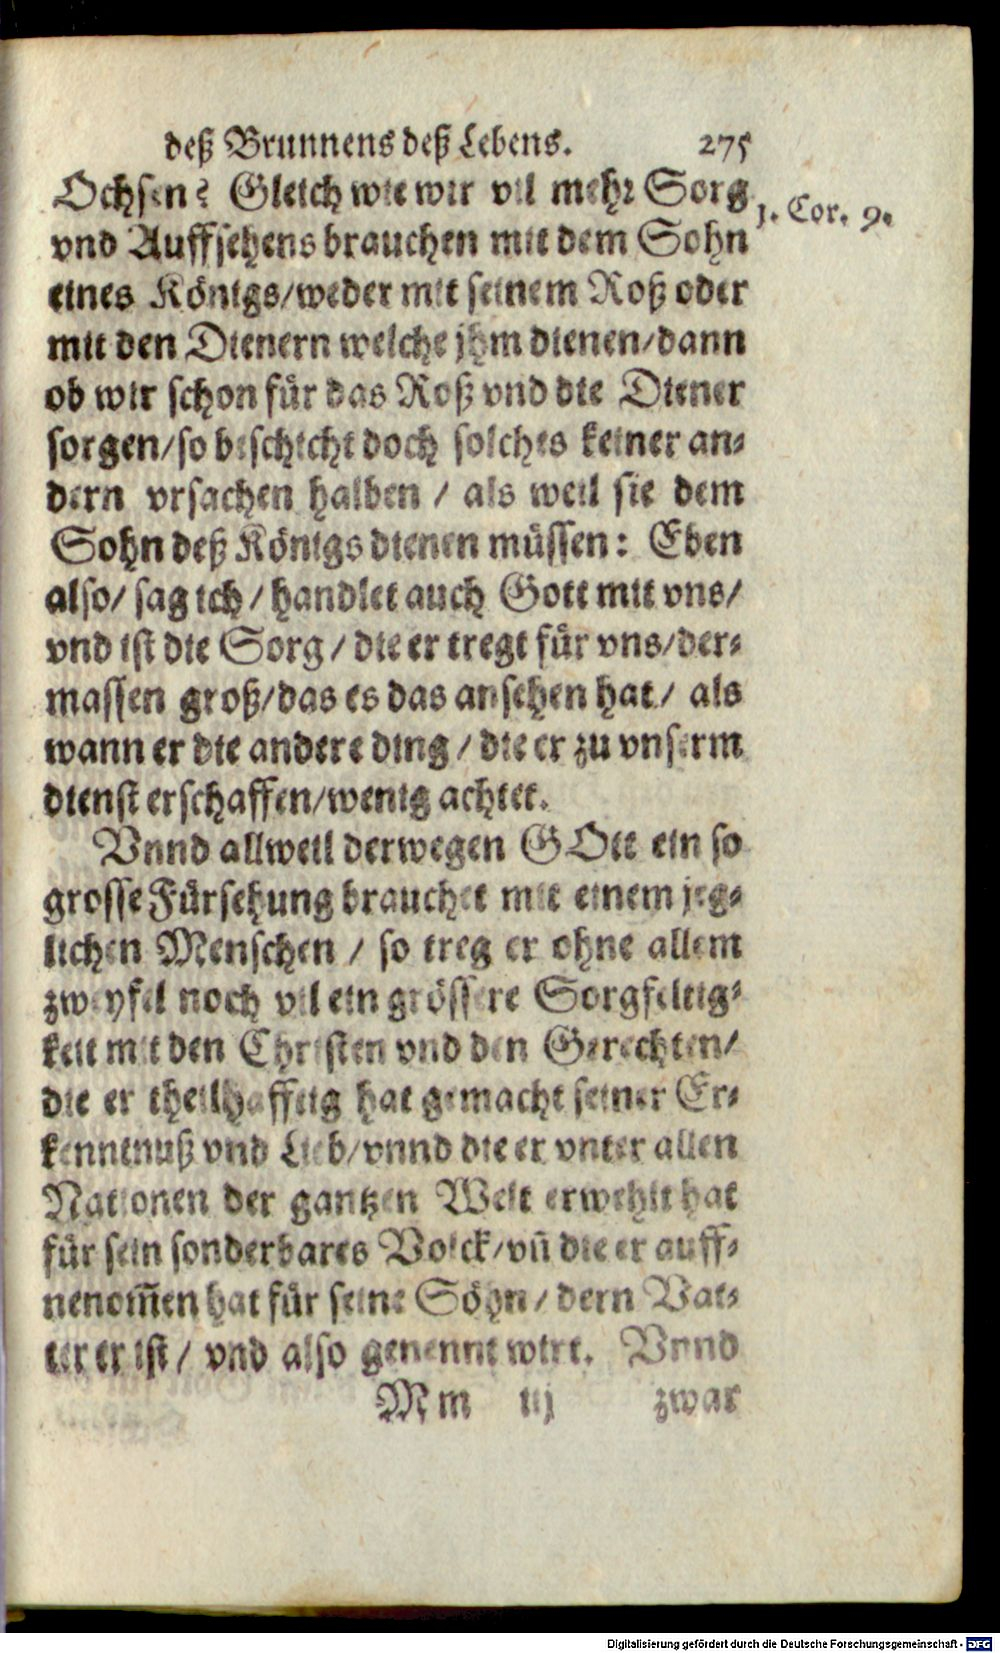 deß Brunnens deß Lebens. 275
Ochsen? Gleich wie wir vil mehr Sorg
1. Cor. 9.
vnd Auffsehens brauchen mit dem Sohn
eines Königs/weder mit seinem Roß oder
mit den Dienern welche jhm dienen/dann
ob wir schon für das Roß vnd die Diener
sorgen/so beschicht doch solches keiner an-
dern vrsachen halben / als weil sie dem
Sohn deß Königs dienen müssen: Eben
also/ sag ich / handlet auch Gott mit vns/
vnd ist die Sorg / die er tregt für vns/der-
massen groß/das es das ansehen hat/ als
wann er die andere ding / die er zu vnserm
dienst erschaffen/wenig achtet.
Vnnd allweil derwegen GOtt ein so
grosse Fürsehung brauchet mit einem jeg-
lichen Menschen / so treg er ohne allem
zweyfel noch vil ein grössere Sorgfeltig-
keit mit den Christen vnd den Gerechten/
die er theilhafftig hat gemacht seiner Er-
kenntnuß vnd Lieb/vnnd die er vnter allen
Nationen der gantzen Welt erwehlt hat
für sein sonderbares Volck/vn̄ die er auff-
nenom̄en hat für seine Söhn / dern Vat-
ter er ist / vnd also genennt wirt. Vnnd
Mm iij zwar
Digitalisierung gefördert durch die Deutsche Forschungsgemeinschaft - DFG